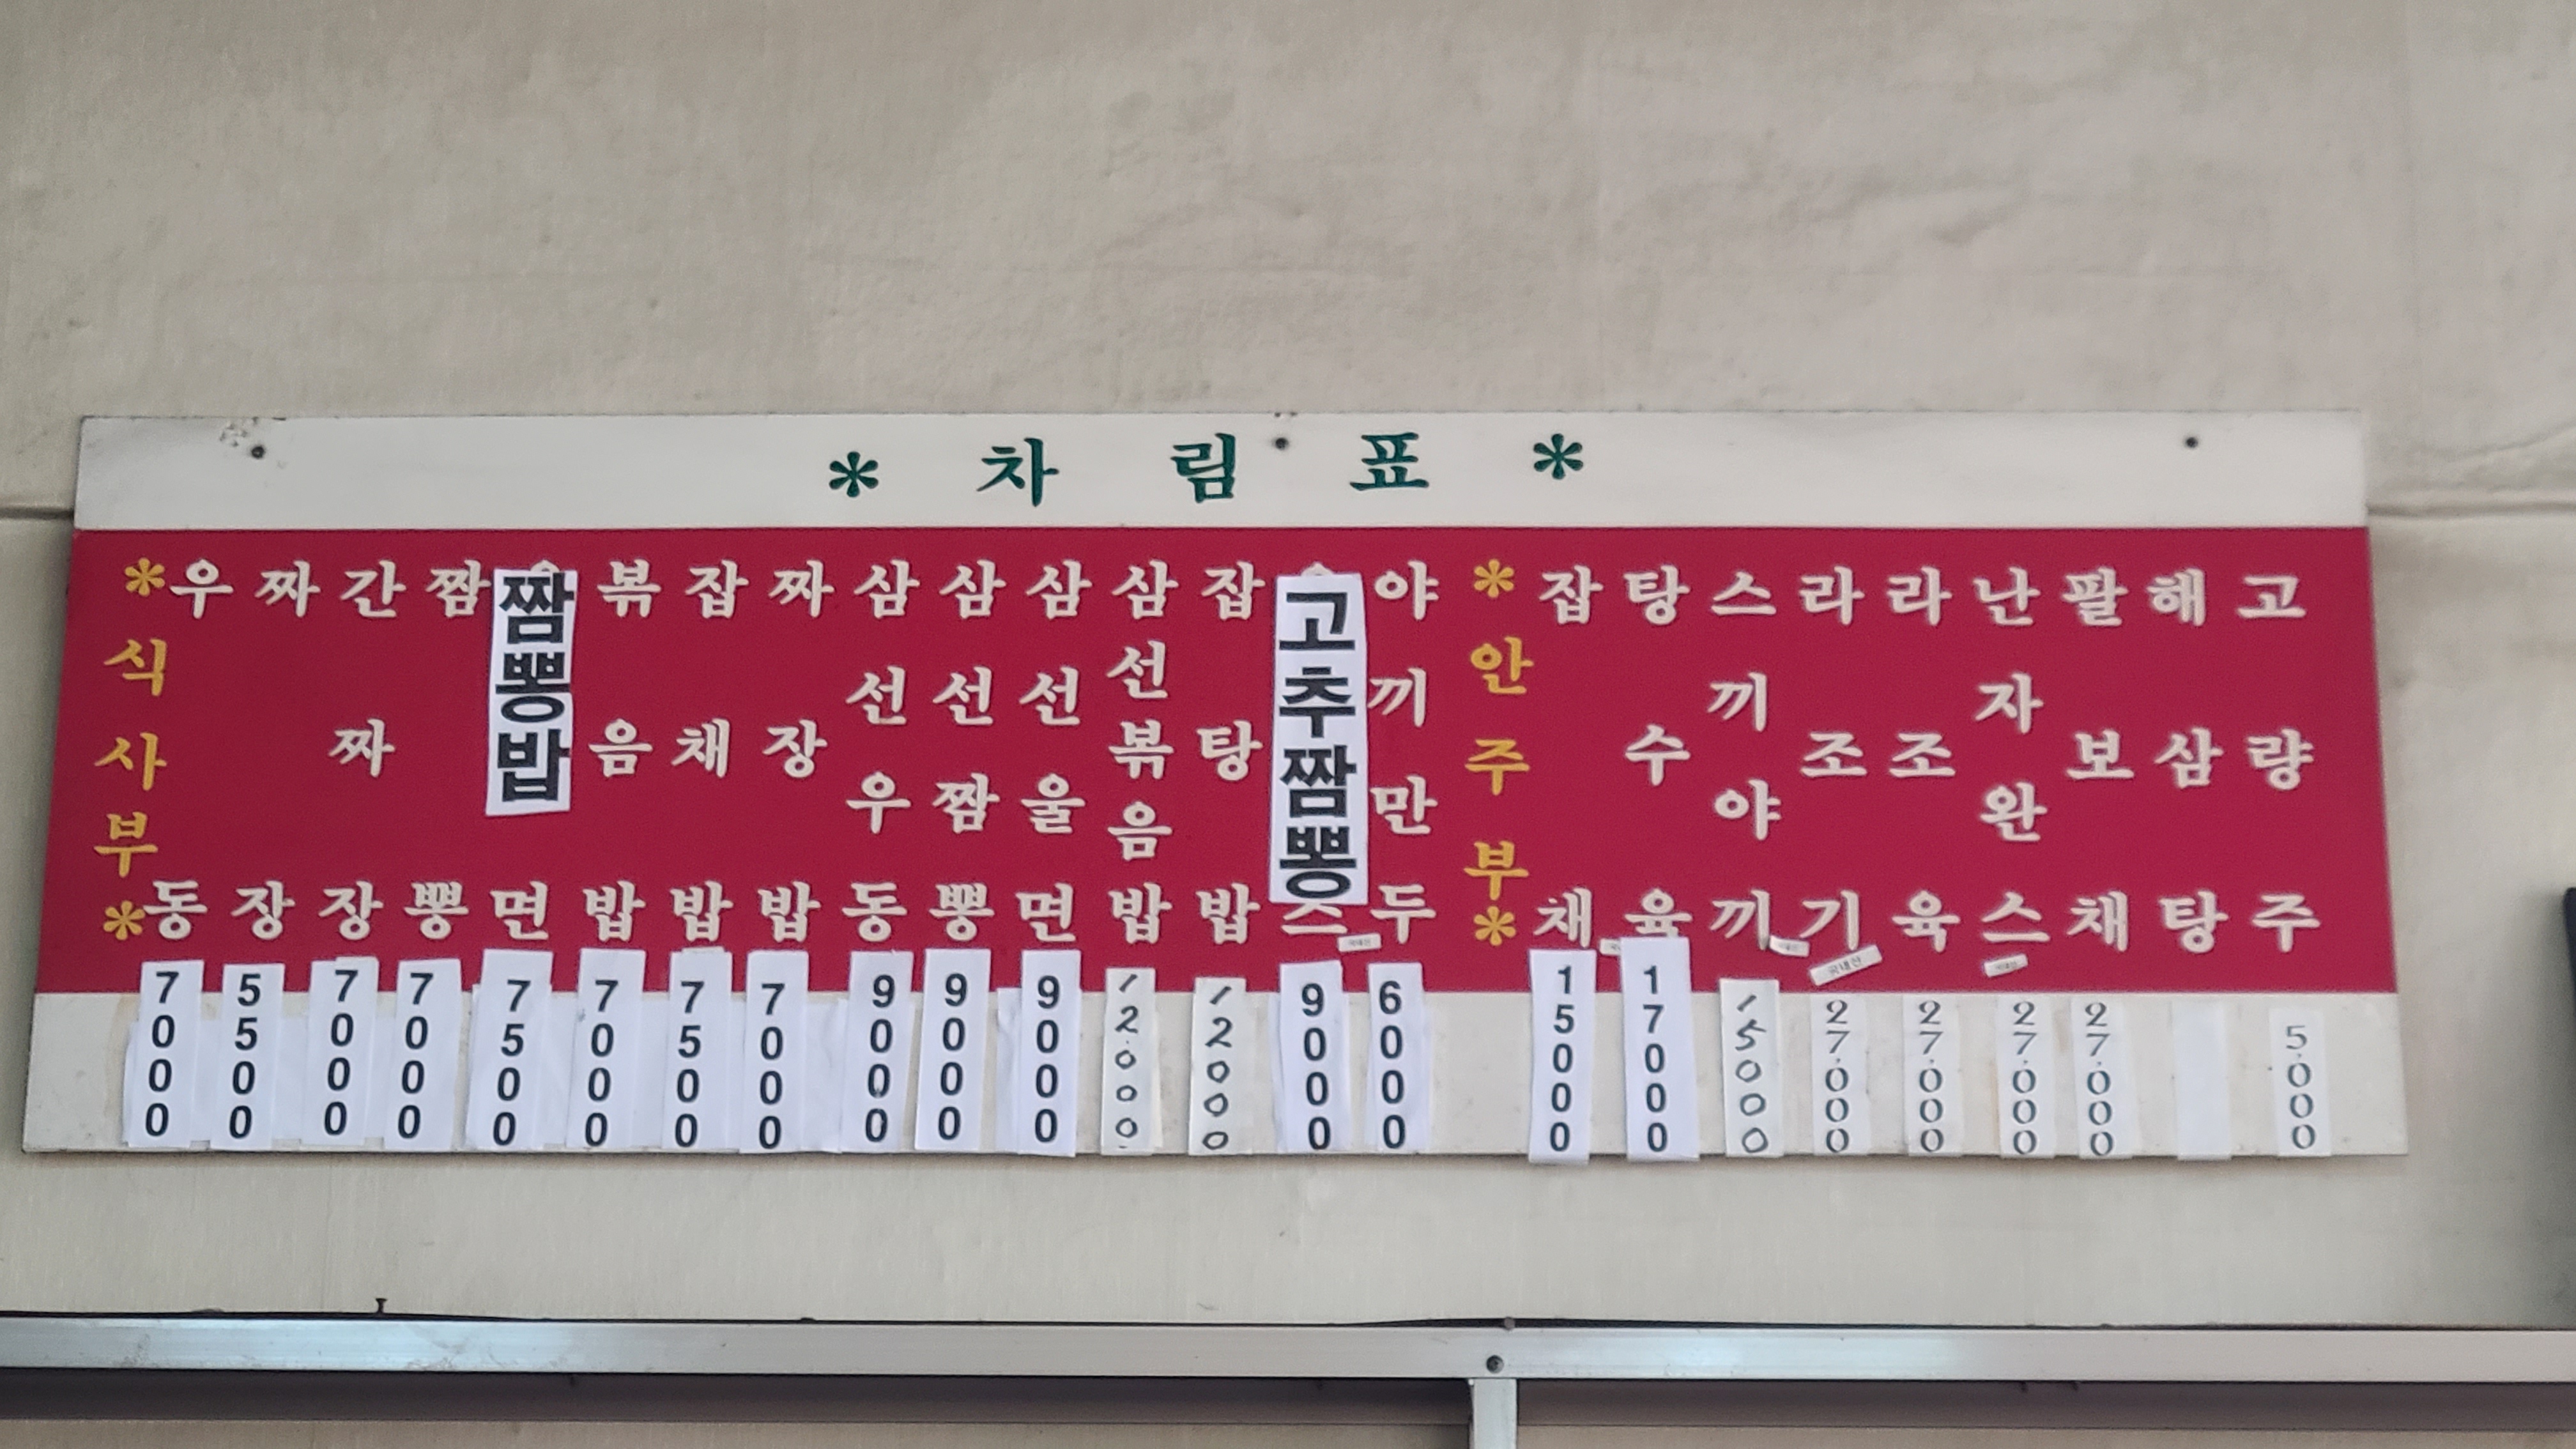 * 차림표 *
* 식사부 *
우동 7000
짜장 5500
간짜장 7000
짬뽕 7000
짬뽕밥 면 7500
볶음밥 7000
잡채밥 7500
짜장밥 7000
삼선우동 9000
삼선짬뽕 9000
삼선울면 9000
삼선볶음밥 12000
잡탕밥 12000
고추짬뽕 스 9000
야끼만두 6000
국내산
* 안주부 *
잡채 15000
탕수육 17000
스끼야끼 15000
라조기 27.000
국내산
라조육 27.000
난자완스 27.000
국내산
팔보채 27.000
해삼탕
고량주 5.000